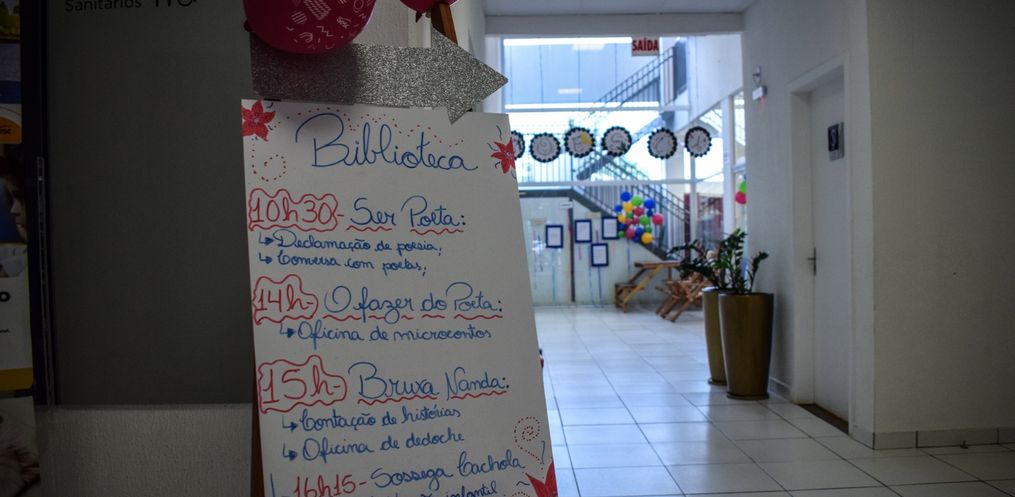 Sanitários
SAÍDA
Biblioteca
10h30- Ser Poeta:
↳ Declamação de poesia;
↳ Conversa com poetas;
14h- O fazer do Poeta:
↳ Oficina de microcontos
15h- Bruxa Nanda:
↳ Contação de histórias
↳ Oficina de dedoche
16h15- Sossega Cachola
infantil